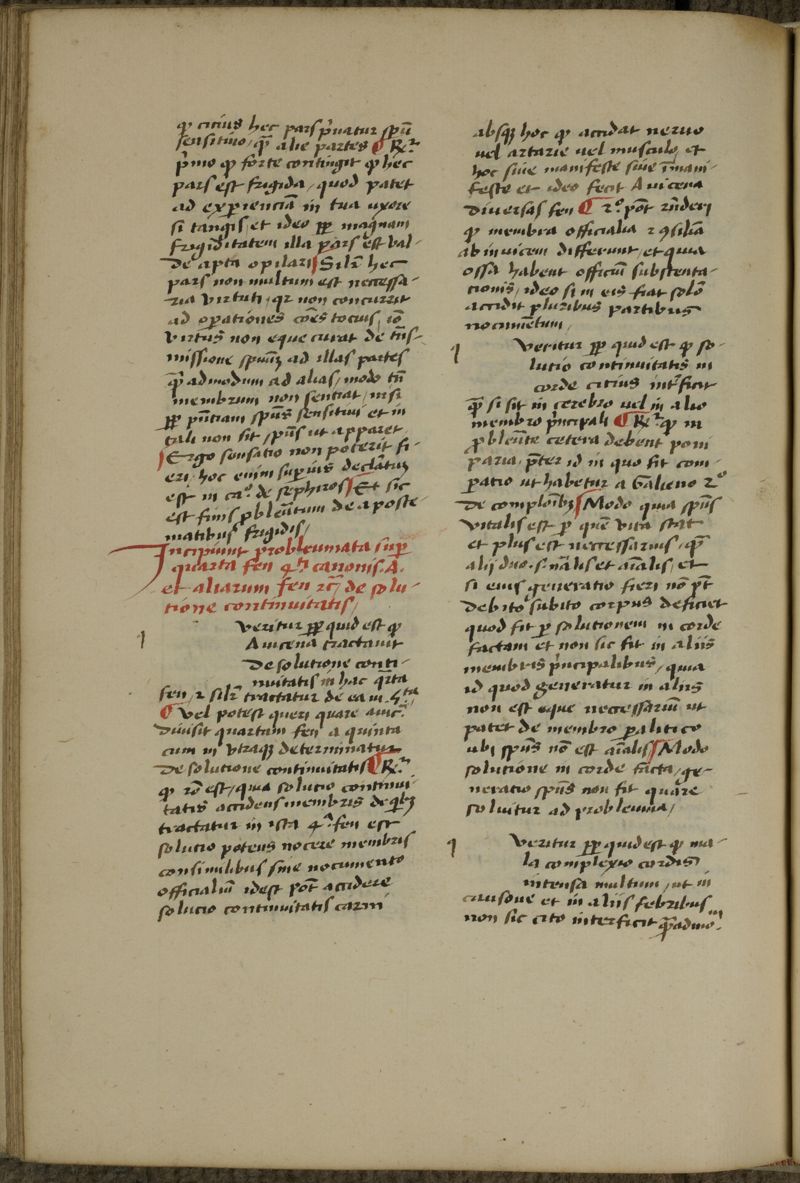 qͥ citius hec pars p̄uatur sp̄u
sensitiuo / qͣ alie partes ¶ R.ͭ
p̄mo qͥ forte contingit qͥ hec
pars est frigida / quod patet
ad experienciā in tua uxore
si tangis et ideo ꝓp̄ magnam
frigiditatem illa pars est val-
de apta opilari / Sil'r hec
pars non multum est necessa-
ria virtuti / qꝛ non concurrit
ad operationes cōēs tocius / iō
virtus non eque curat de tn̄s-
missione spūū ad illas partes
qͣadmodum ad alias / modo tn̄
membrum non sentiat / nisi
ꝓp̄ pn̄tiam spūs sensitiui et in
tali non sit / spūs ut apparet
/ Ergo sensatio non poterit fi-
eri / hoc enim superius declaratū
est in ca.º de sephiros / Et sic
est finis ꝓbleūtum de aposte-
matibus frigidis /
Incipiunt probleumata super
quarta fen qͬti canonis .A.
et aliarum fen ⁊ꝯ / de solu-
tione continuitatis /
Veritur ꝓp̄ quid est qͥ
Auicena tractauit
De solutione conti-
nuitatis in hac qͬta
fen / ⁊ sil'r tractatur de ea in .4.ᵗᵃ
¶ vel potest queri quare auic.ͣ
Diuisit quartam fen a quinta
cum in utraqꝫ determinatur
De solutione continuitatis ¶ R.ͭ
qͥ rō est / quia solutio continui-
tatis accidens membris de qͥbꝫ
tractatur in ista 4.ͣ fen est
solutio potens nocere membris
consimilibus sine nocumento
officialiū idest pōt accidere
solutio continuitatis carni
absqꝫ hoc qͥ accidat neruo
uel artarie uel musculo, et
hoc siue manifeste siue īmani-
feste et ideo fecit Auicena
Diuersas fen ¶ 2.º pōt rn̄deri
qͥ membra officialia ⁊ ꝯsiliā
ab inuicem differunt, et quia
ossa habent officiū substenta-
tionis, ideo si in eis fiat solō
accidit pluribus partibus
nocumētum,
Veritur ꝓp̄ quid est qͥ so-
lutio continuitatis in
corde citius intͬficit
qͣ si sit in cerebro uel in alio
membro p̄ncipali ¶ R.ͭ qͥ in
ꝓbleūte cetera debent poni
paria, p̄ter id in quo fit com-
paratio ut habetur a Galieno 2.º
De complōibꝫ / Modo quia spūs
vitalis est ꝑ quē vita stat
et plus est necessarius, qͣ
alij duo .s. nālis et aīalis, et
si eius generatio fieri nō p̄t
Debito subito corpus deficiet
quod fit ꝑ solutionem in corde
factam et non sic fit in aliis
membris p̄ncipalibus, quia
id quod generatur in aliis
non est eque necessariū ut
patet de membro palitico
ubi spūs nō est aīalis / Modo
solutione in corde facta, ge-
neratio spūs non fit quare
soluitur ad probleuma,
Veritur ꝓp̄ quid est qͥ ma-
la complexio cordis
intensa multum, ut in
causone et in aliis febribus
non sic cito interficit qͣadmo.ᵐ